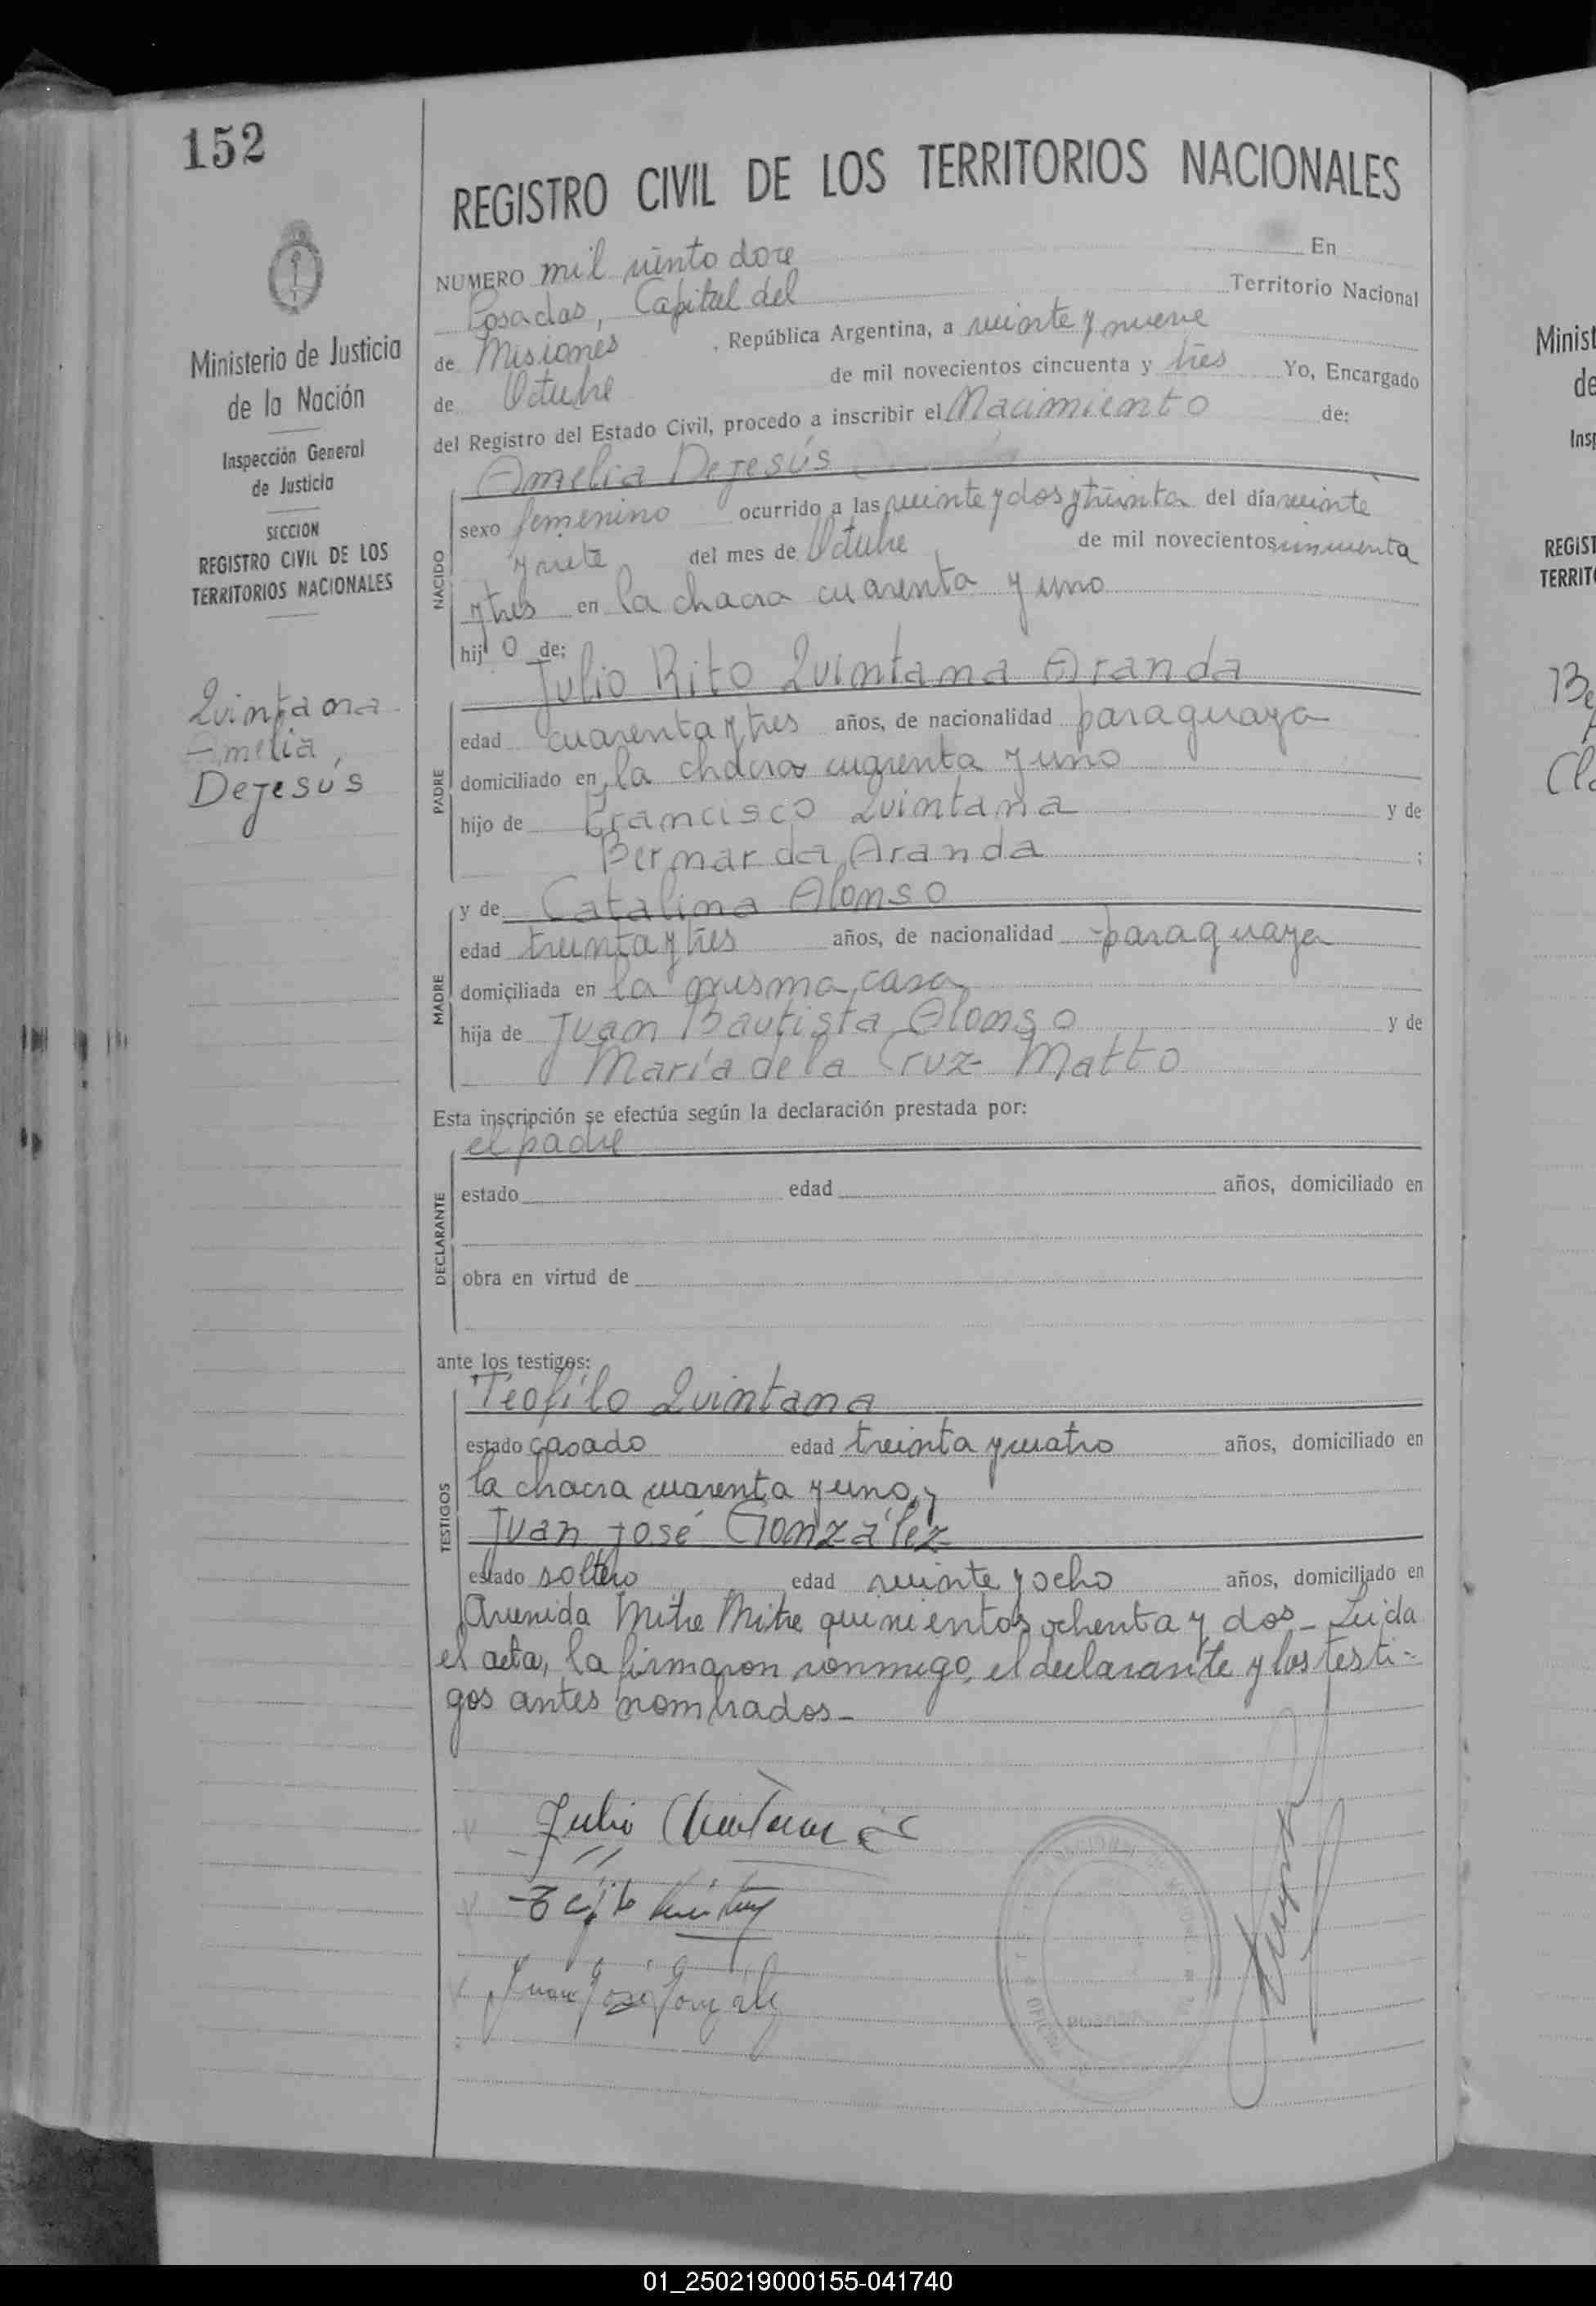 152
REGISTRO CIVIL DE LOS TERRITORIOS NACIONALES
Ministerio de Justicia
de la Nación
Inspección General
de Justicia
SECCION
REGISTRO CIVIL DE LOS
TERRITORIOS NACIONALES
Quintana
Amelia,
Dejesús
NUMERO mil ciento doce En
Posadas, Capital del Territorio Nacional
de Misiones, República Argentina, a veinte y nueve
de Octubre de mil novecientos cincuenta y tres Yo, Encargado
del Registro del Estado Civil, procedo a inscribir el Nacimiento de:
NACIDO
Amelia Dejesús
sexo femenino ocurrido a las veinte y dos y treinta del día veinte
y siete del mes de Octubre, de mil novecientos cincuenta
y tres en la chacra cuarenta y uno
hij o de:
PADRE
Julio Rito Quintana Aranda
edad cuarenta y tres años, de nacionalidad paraguaya
domiciliado en la chacra cuarenta y uno
hijo de Francisco Quintana y de
Bernarda Aranda ;
MADRE
y de Catalina Alonso
edad treinta y tres años, de nacionalidad paraguaya
domiciliada en la misma casa
hija de Juan Bautista Alonso y de
María de la Cruz Matto
Esta inscripción se efectúa según la declaración prestada por:
el padre
DECLARANTE
estado edad años, domiciliado en
obra en virtud de
ante los testigos:
TESTIGOS
Teofilo Quintana
estado casado edad treinta y cuatro años, domiciliado en
la chacra cuarenta y uno, y
Juan José González
estado soltero edad veinte y ocho años, domiciliado en
Avenida Mitre Mitre quinientos ochenta y dos_ Leida
el acta, la firmaron conmigo, el declarante y los testi-
gos antes nombrados_
Julio Quintana
Juan José González
Minist
de
Insp
REGIST
TERRITO
01_250219000155-041740